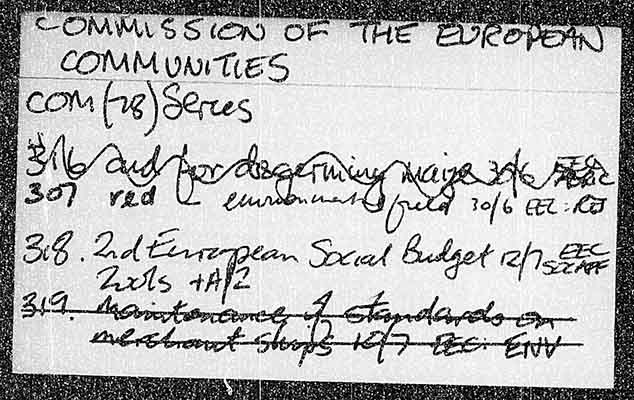 COMMISSION OF THE EUROPEAN
COMMUNITIES
COM(78) Series
316 and for degerming maize 30/6 EEC
307 red environmental field 30/6 EEC:
318. 2nd European Social Budget 12/7 EEC
2vols + A/2 SOC AFF
319. Maintenance of standards on
merchant ships 10/7 EEC: ENV